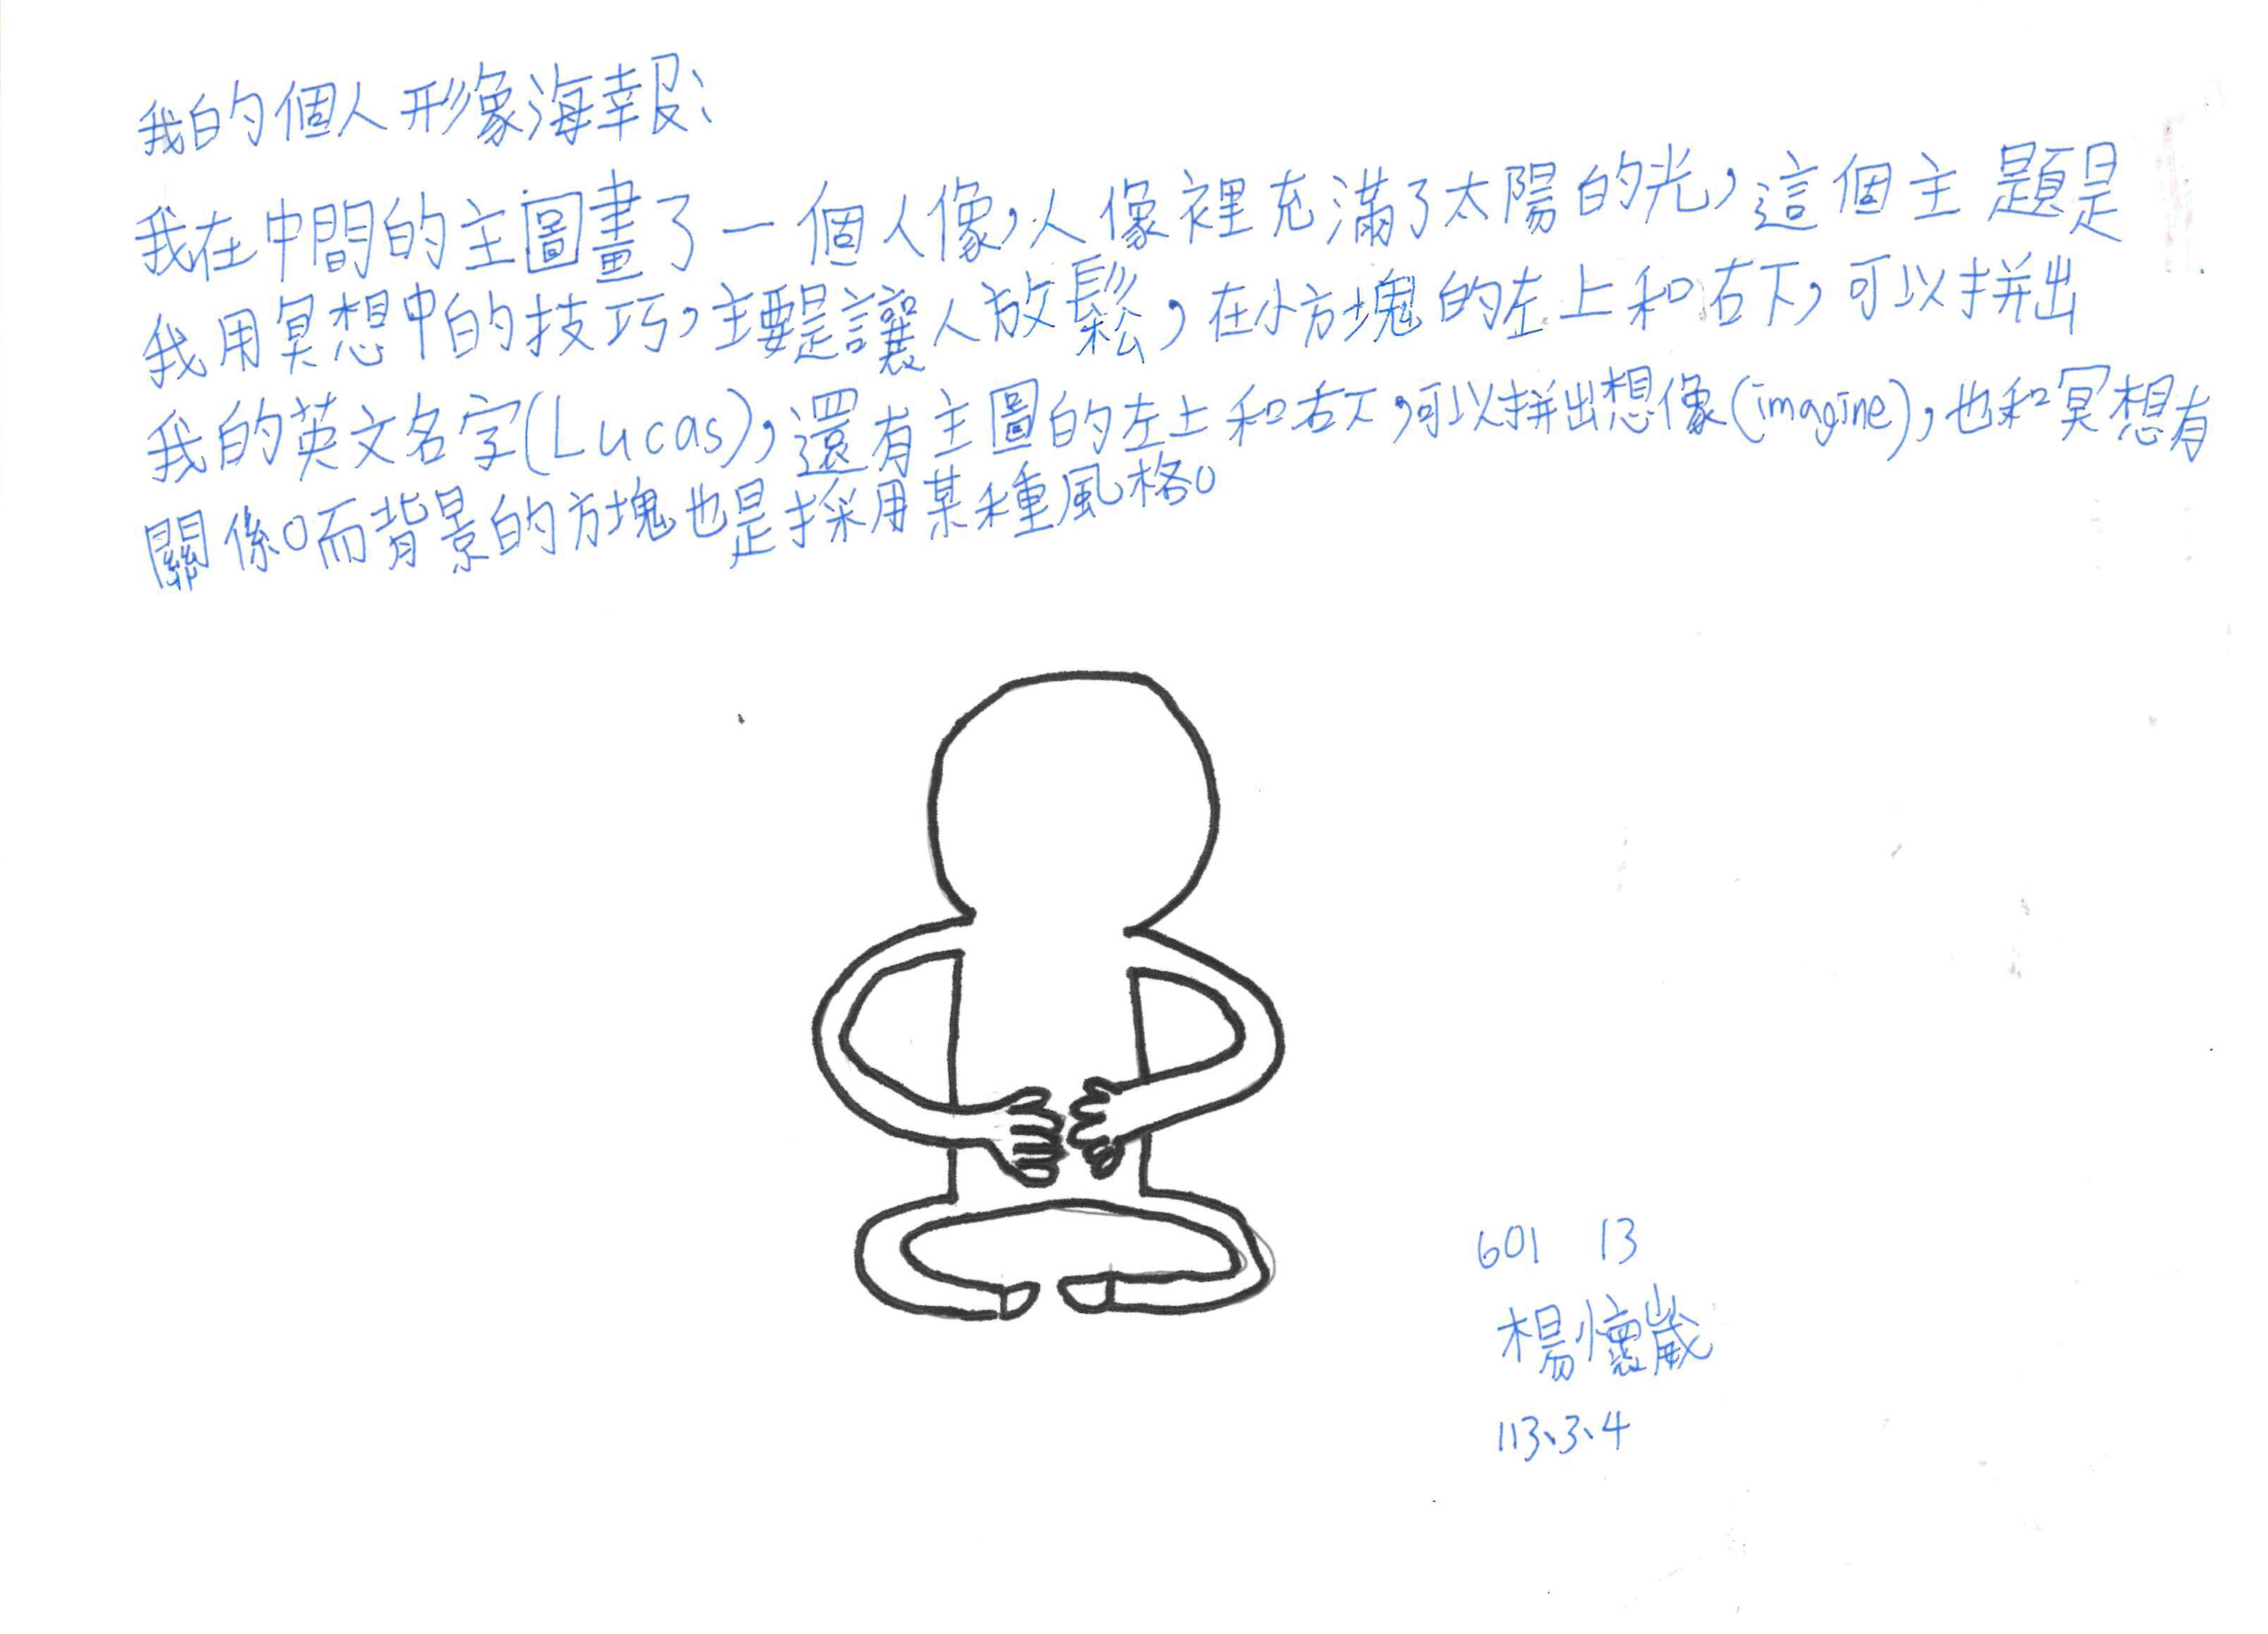 我的個人形像海報、
我在中間的主圖畫了一個人像，人像裡充滿了太陽的光，這個主題是
我用冥想中的技巧，主要是讓人放鬆，在小方塊的左上和右下，可以拼出
我的英文名字(Lucas)，還有主圖的左上和右下，可以拼出想像(imagine)，也和冥想有
關係。而背景的方塊也是採用某種風格。
601 13
楊懷崴
113、3、4